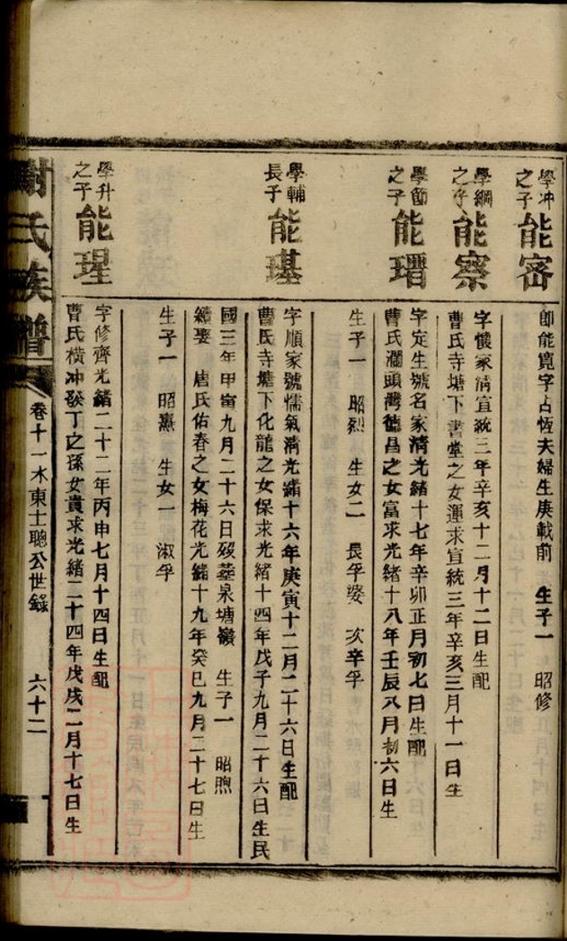 學冲之子 能密
即能寬字占恆夫婦生庚載前 生子一 昭修
學綱之子 能察
字懷家清宣統三年辛亥十二月十二日生配
曹氏寺塘下書堂之女運求宣統三年辛亥三月十一日生
學節之子 能瑨
字定生號名家清光緒十七年辛卯正月初七日生配
曹氏瀾頭灣德昌之女富求光緒十八年壬辰八月初六日生
生子一 昭烈 生女二 長孚婆 次辛孚
學輔長子 能璂
字順家號懦氣清光緒十六年庚寅十二月二十六日生配
曹氏寺塘下化龍之女保求光緒十四年戊子九月二十六日生民
國三年甲寅九月二十六日歿葬泉塘嶺 生子一 昭煦
續娶 唐氏佑春之女梅花光緒十九年癸巳九月二十七日生
生子一 昭熏 生女一 淑孚
學升之子 能瑆
字修齊光緒二十二年丙申七月十四日生配
曹氏橫冲發丁之孫女貴求光緒二十四年戊戌二月十七日生
謝氏族譜 卷十一木東士聰公世錄 六十二